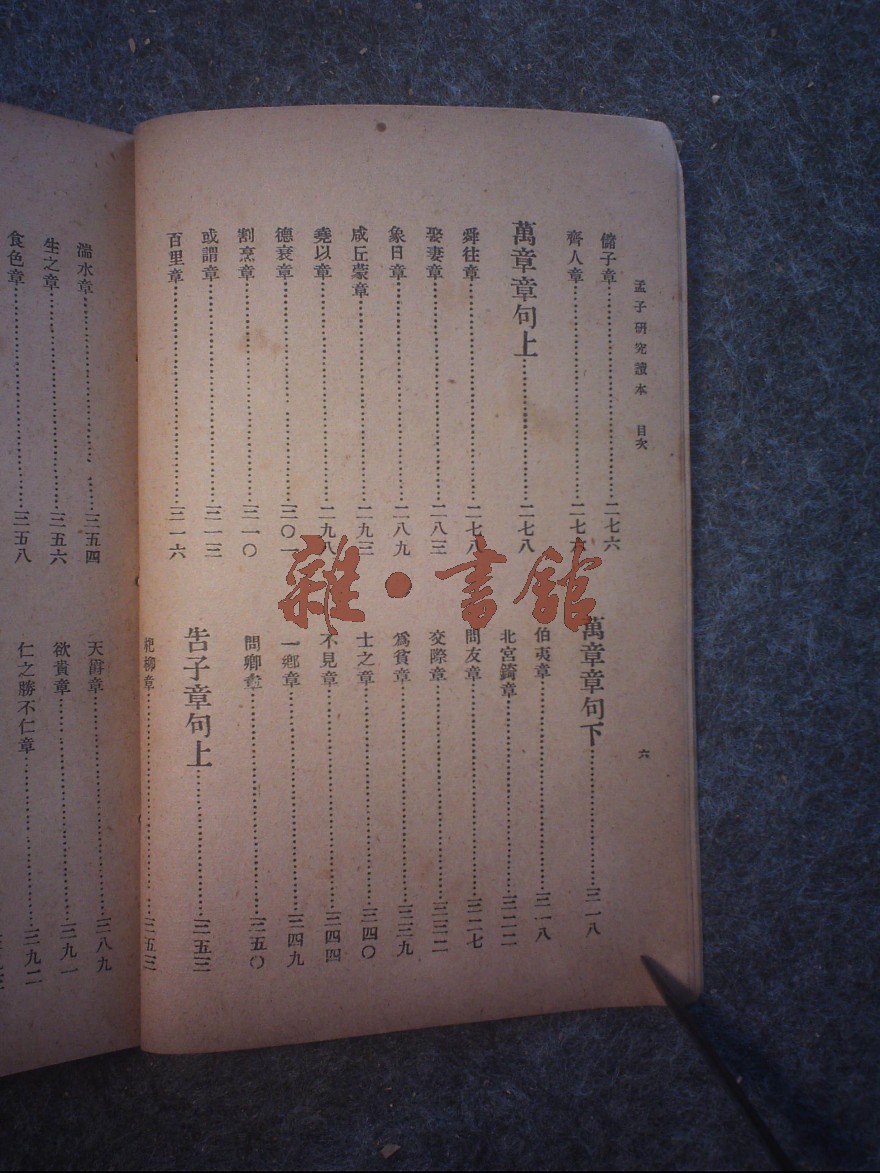 孟子研究讀本　目次
六
儲子章 二七六
齊人章 二七六
萬章章句上 二七八
舜往章 二七八
娶妻章 二八三
象日章 二八九
咸丘蒙章 二九三
堯以章 二九八
德衰章 三〇一
割烹章 三一〇
或謂章 三一三
百里章 三一六
萬章章句下 三一八
伯夷章 三一八
北宮錡章 三二二
問友章 三二七
交際章 三三二
爲貧章 三三九
士之章 三四〇
不見章 三四四
一鄉章 三四九
問卿章 三五〇
告子章句上 三五三
杞柳章 三五三
湍水章 三五四
生之章 三五六
食色章 三五八
天爵章 三八九
欲貴章 三九一
仁之勝不仁章 三九二
雜·書館